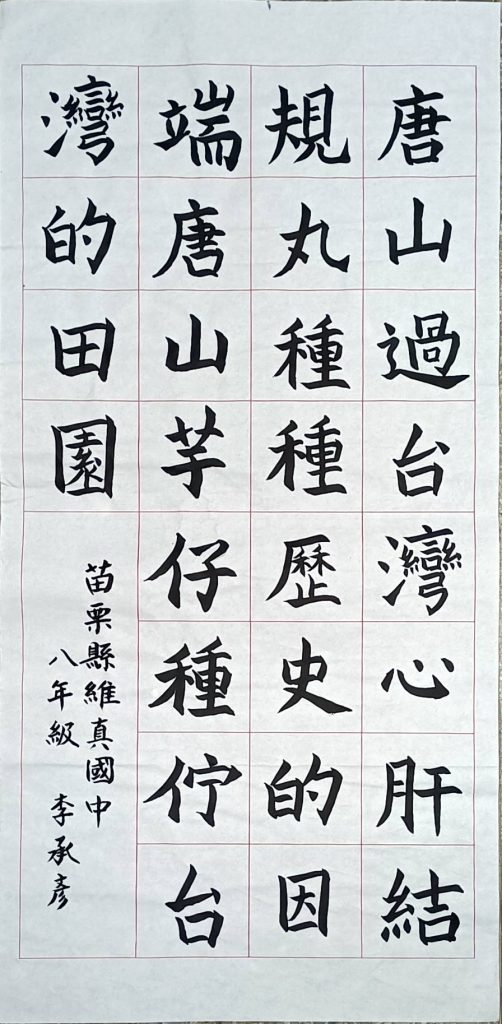 唐山過台灣心肝結
規丸種種歷史的因
端唐山芋仔種佇台
灣的田園
苗栗縣維真國中
八年級 李承彥